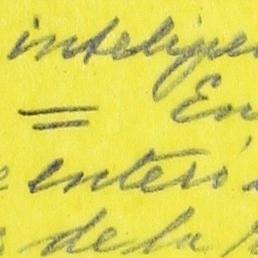 inteligen
= En
e enteró
s de la r